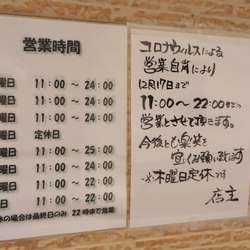 営業時間
曜日 11:00 〜 24:00
曜日 11:00 〜 24:00
曜日 11:00 〜 24:00
曜日 定休日
曜日 11:00 〜 25:00
曜日 11:00 〜 24:00
曜日 11:00 〜 24:00
休の場合は最終日のみ 22時まで営業
コロナウィルスによる
営業自粛により
12月17日まで
11:00〜22:00まで
営業とさせて頂きます。
今後とも楽笑を
宜しくお願い致します
※木曜日定休です
店主